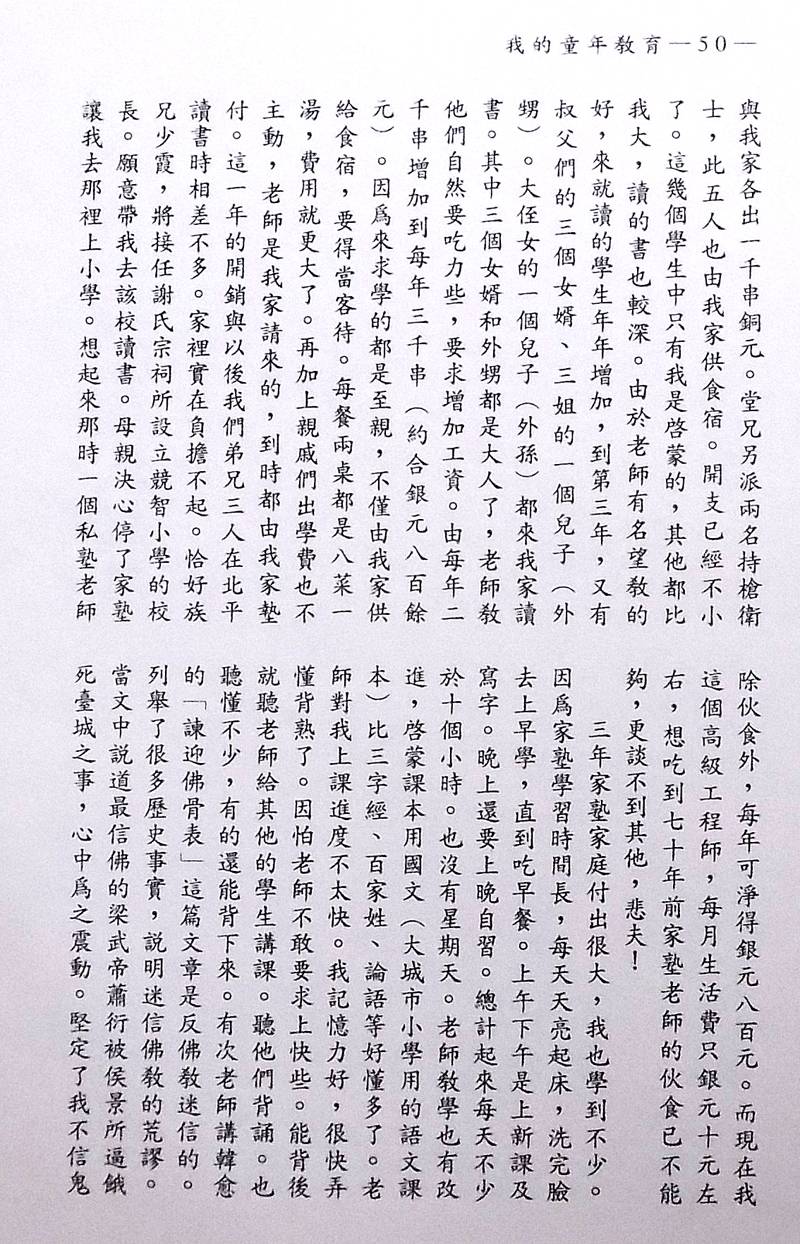 我的童年教育—50—
與我家各出一千串銅元。堂兄另派兩名持槍衛
士，此五人也由我家供食宿。開支已經不小
了。這幾個學生中只有我是啓蒙的，其他都比
我大，讀的書也較深。由於老師有名望教的
好，來就讀的學生年年增加，到第三年，又有
叔父們的三個女婿、三姐的一個兒子（外
甥）。大侄女的一個兒子（外孫）都來我家讀
書。其中三個女婿和外甥都是大人了，老師教
他們自然要吃力些，要求增加工資。由每年二
千串增加到每年三千串（約合銀元八百餘
元）。因爲來求學的都是至親，不僅由我家供
給食宿，要得當客待。每餐兩桌都是八菜一
湯，費用就更大了。再加上親戚們出學費也不
主動，老師是我家請來的，到時都由我家墊
付。這一年的開銷與以後我們弟兄三人在北平
讀書時相差不多。家裡實在負擔不起。恰好族
兄少霞，將接任謝氏宗祠所設立競智小學的校
長。願意帶我去該校讀書。母親決心停了家塾
讓我去那裡上小學。想起來那時一個私塾老師
除伙食外，每年可淨得銀元八百元。而現在我
這個高級工程師，每月生活費只銀元十元左
右，想吃到七十年前家塾老師的伙食已不能
夠，更談不到其他，悲夫！
三年家塾家庭付出很大，我也學到不少。
因爲家塾學習時間長，每天天亮起床，洗完臉
去上早學，直到吃早餐。上午下午是上新課及
寫字。晚上還要上晚自習。總計起來每天不少
於十個小時。也沒有星期天。老師教學也有改
進，啓蒙課本用國文（大城市小學用的語文課
本）比三字經、百家姓、論語等好懂多了。老
師對我上課進度不太快。我記憶力好，很快弄
懂背熟了。因怕老師不敢要求上快些。能背後
就聽老師給其他的學生講課。聽他們背誦。也
聽懂不少，有的還能背下來。有次老師講韓愈
的「諫迎佛骨表」這篇文章是反佛教迷信的。
列舉了很多歷史事實，説明迷信佛教的荒謬。
當文中説道最信佛的梁武帝蕭衍被侯景所逼餓
死臺城之事，心中爲之震動。堅定了我不信鬼